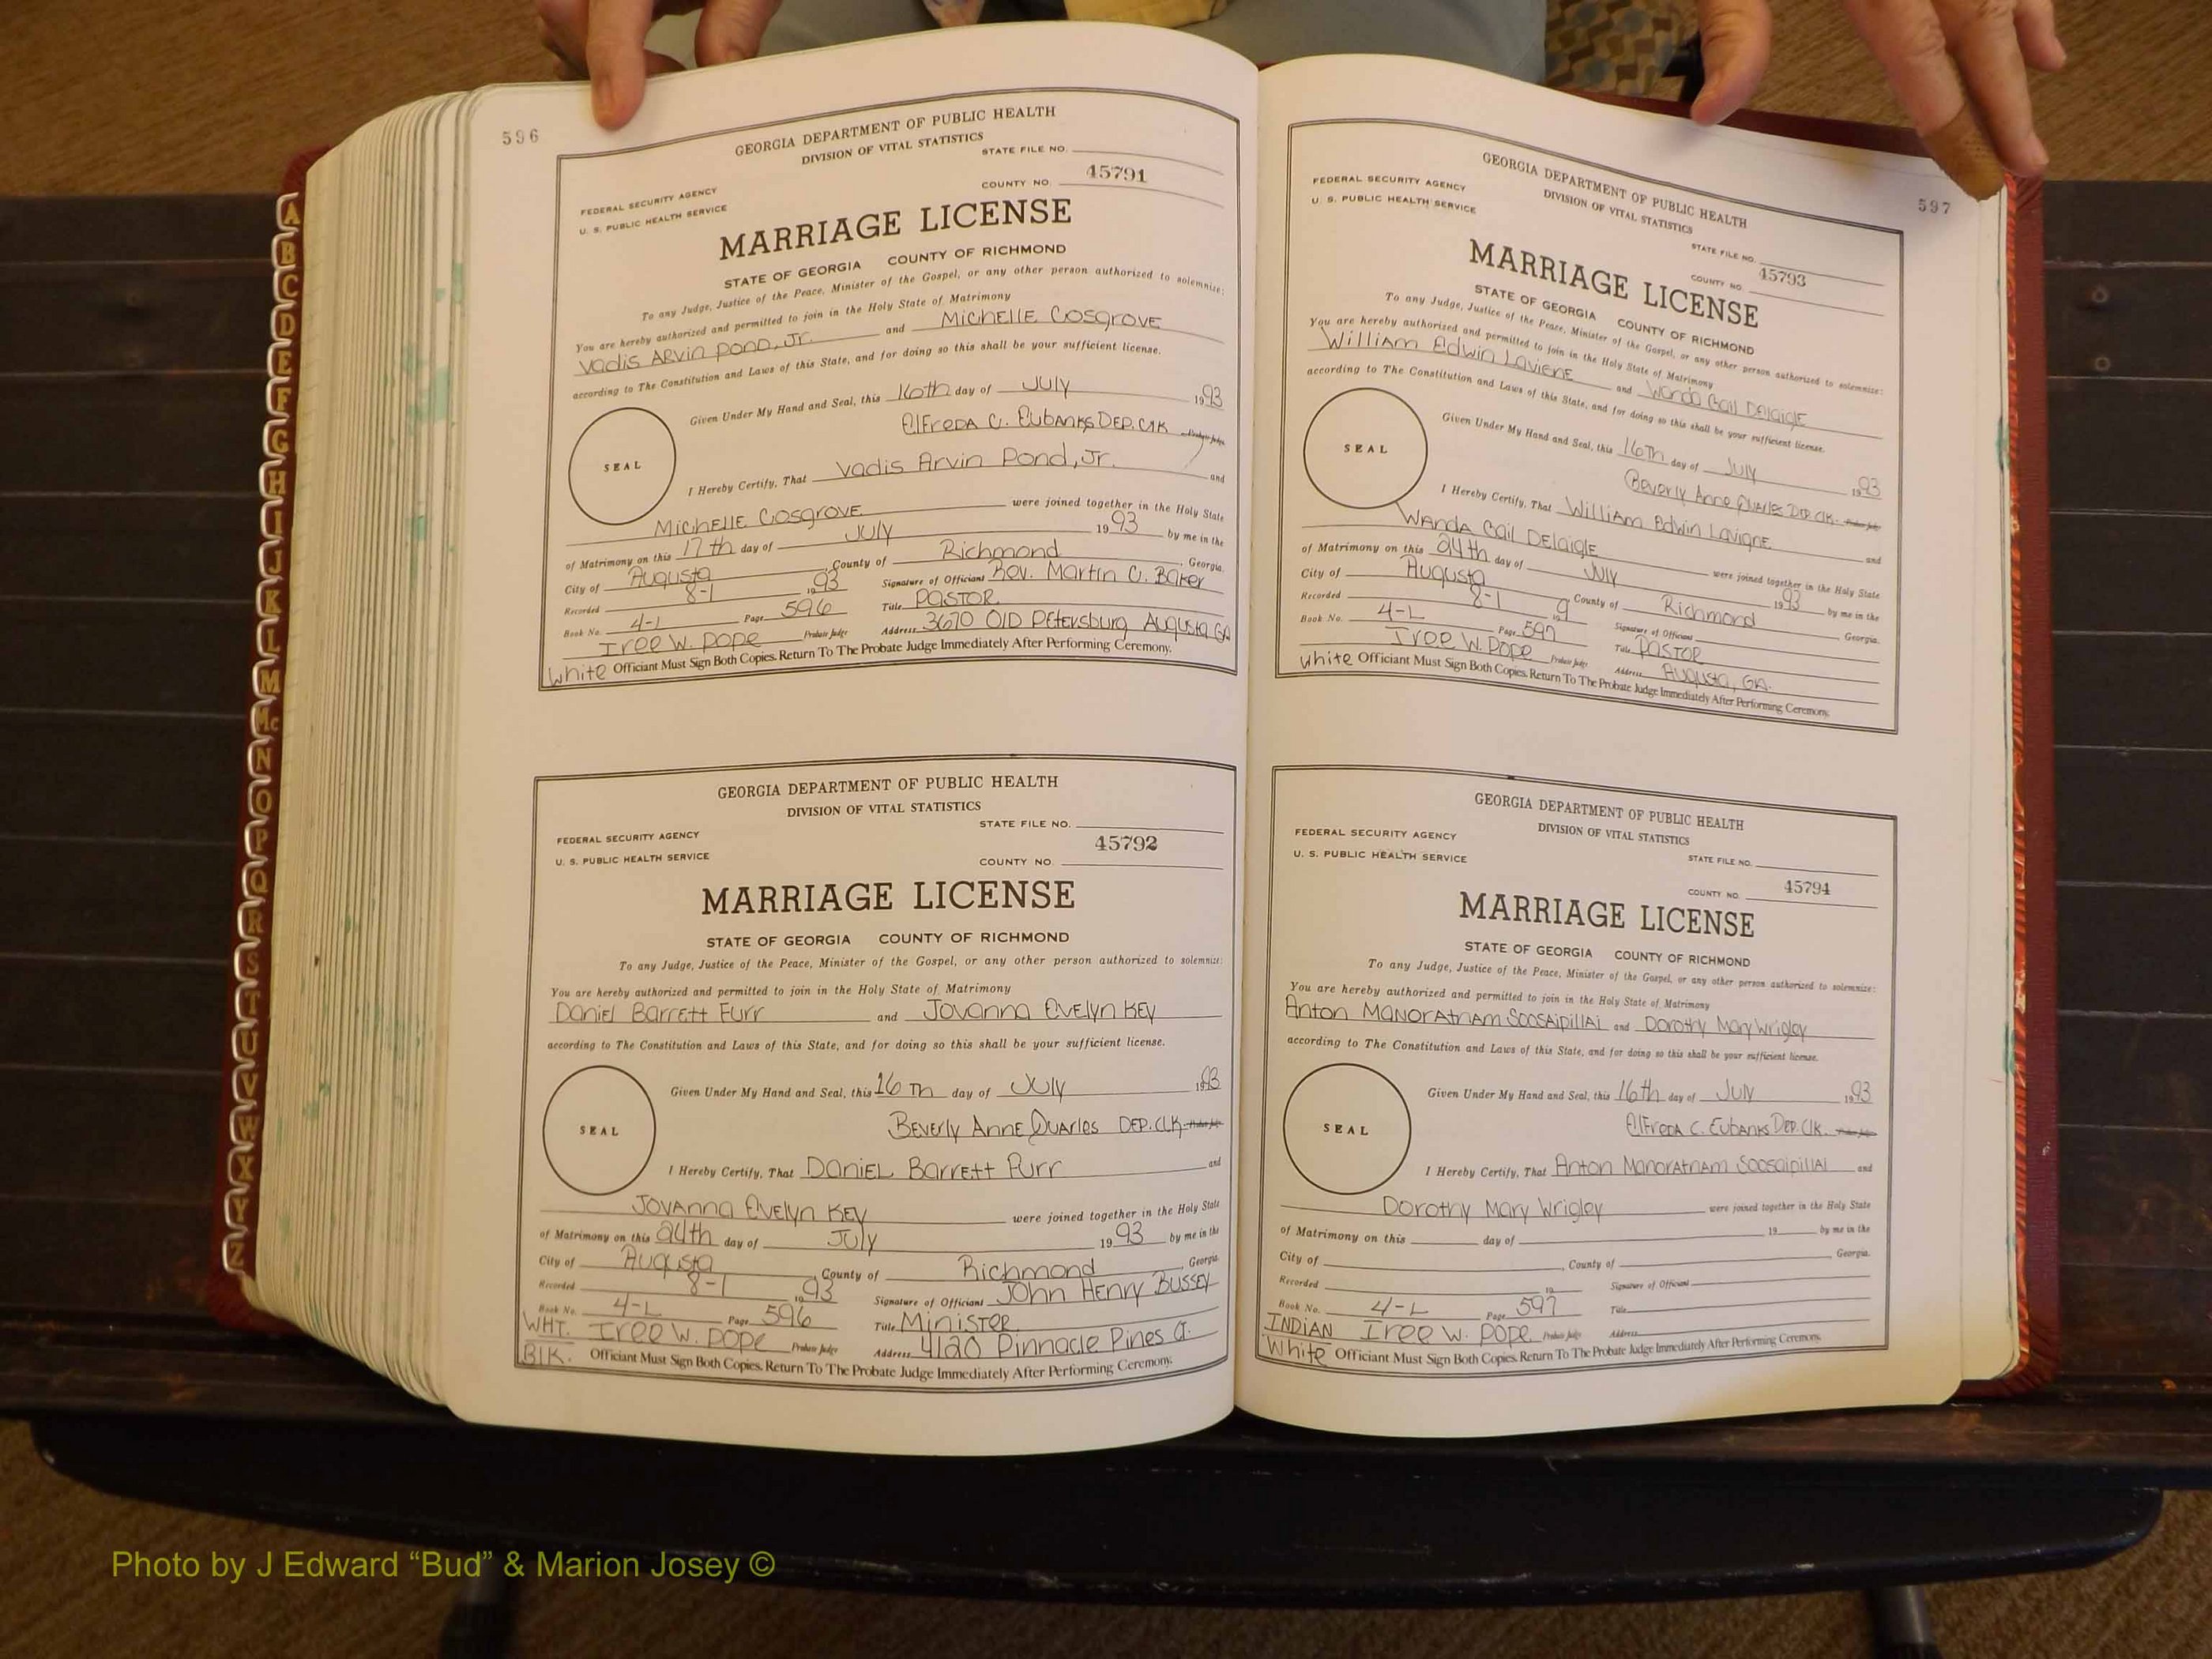 596
GEORGIA DEPARTMENT OF PUBLIC HEALTH
DIVISION OF VITAL STATISTICS
STATE FILE NO.
FEDERAL SECURITY AGENCY
U. S. PUBLIC HEALTH SERVICE
COUNTY NO. 45791
MARRIAGE LICENSE
STATE OF GEORGIA COUNTY OF RICHMOND
To any Judge, Justice of the Peace, Minister of the Gospel, or any other person authorized to solemnize:
You are hereby authorized and permitted to join in the Holy State of Matrimony
Vadis Arvin Pond, Jr. and Michelle Cosgrove
according to The Constitution and Laws of this State, and for doing so this shall be your sufficient license.
Given Under My Hand and Seal, this 16th day of July 1993
Alfreda C. Eubanks Dep. Clk Probate Judge
SEAL
I Hereby Certify, That Vadis Arvin Pond, Jr. and
Michelle Cosgrove were joined together in the Holy State
of Matrimony on this 17th day of July 1993 by me in the
City of Augusta, County of Richmond, Georgia.
Recorded 8-1 1993 Signature of Officiant Rev. Martin C. Baker
Book No. 4-L Page 596 Title Pastor
Iree W. Pope Probate Judge Address 3670 Old Petersburg Augusta GA
White Officiant Must Sign Both Copies. Return To The Probate Judge Immediately After Performing Ceremony.
GEORGIA DEPARTMENT OF PUBLIC HEALTH
DIVISION OF VITAL STATISTICS
STATE FILE NO.
FEDERAL SECURITY AGENCY
45792
U. S. PUBLIC HEALTH SERVICE
COUNTY NO.
MARRIAGE LICENSE
STATE OF GEORGIA COUNTY OF RICHMOND
To any Judge, Justice of the Peace, Minister of the Gospel, or any other person authorized to solemnize:
You are hereby authorized and permitted to join in the Holy State of Matrimony
Daniel Barrett Furr and Jovanna Evelyn Key
according to The Constitution and Laws of this State, and for doing so this shall be your sufficient license.
Given Under My Hand and Seal, this 16Th day of July 1993
Beverly Anne Quarles Dep. Clk Probate Judge
SEAL
I Hereby Certify, That Daniel Barrett Furr and
Jovanna Evelyn Key were joined together in the Holy State
of Matrimony on this 24th day of July 1993 by me in the
City of Augusta, County of Richmond, Georgia.
Recorded 8-1 1993 Signature of Officiant John Henry Bussey
Book No. 4-L Page 596 Title Minister
WHT. Iree W. Pope Probate Judge Address 4120 Pinnacle Pines Ct.
Blk. Officiant Must Sign Both Copies. Return To The Probate Judge Immediately After Performing Ceremony.
597
GEORGIA DEPARTMENT OF PUBLIC HEALTH
DIVISION OF VITAL STATISTICS
FEDERAL SECURITY AGENCY
U. S. PUBLIC HEALTH SERVICE
STATE FILE NO.
COUNTY NO. 45793
MARRIAGE LICENSE
STATE OF GEORGIA COUNTY OF RICHMOND
To any Judge, Justice of the Peace, Minister of the Gospel, or any other person authorized to solemnize:
You are hereby authorized and permitted to join in the Holy State of Matrimony
William Edwin Lavigne and Wanda Gail Delaigle
according to The Constitution and Laws of this State, and for doing so this shall be your sufficient license.
Given Under My Hand and Seal, this 16Th day of July 1993
Beverly Anne Quarles Dep. Clk. Probate Judge
SEAL
I Hereby Certify, That William Edwin Lavigne and
Wanda Gail Delaigle were joined together in the Holy State
of Matrimony on this 24th day of July 1993 by me in the
City of Augusta, County of Richmond Georgia.
Recorded 8-1 199 Signature of Officiant
Book No. 4-L Page 597 Title Pastor
Iree W. Pope Probate Judge Address Augusta, GA.
White Officiant Must Sign Both Copies. Return To The Probate Judge Immediately After Performing Ceremony.
GEORGIA DEPARTMENT OF PUBLIC HEALTH
DIVISION OF VITAL STATISTICS
FEDERAL SECURITY AGENCY
U. S. PUBLIC HEALTH SERVICE
STATE FILE NO.
COUNTY NO. 45794
MARRIAGE LICENSE
STATE OF GEORGIA COUNTY OF RICHMOND
To any Judge, Justice of the Peace, Minister of the Gospel, or any other person authorized to solemnize:
You are hereby authorized and permitted to join in the Holy State of Matrimony
Anton Manoratnam Soosaipillai and Dorothy Mary Wrigley
according to The Constitution and Laws of this State, and for doing so this shall be your sufficient license.
Given Under My Hand and Seal, this 16th day of July 1993
Alfreda C. Eubanks Dep. Clk. Probate Judge
SEAL
I Hereby Certify, That Anton Manoratnam Soosaipillai and
Dorothy Mary Wrigley were joined together in the Holy State
of Matrimony on this day of 19 by me in the
City of , County of Georgia.
Recorded 19 Signature of Officiant
Book No. 4-L Page 597 Title
INDIAN Iree W. Pope Probate Judge Address
White Officiant Must Sign Both Copies. Return To The Probate Judge Immediately After Performing Ceremony.
A
B
C
D
E
F
G
H
I
J
K
L
M
Mc
N
O
P
Q
R
S
T
U
V
W
X
Y
Z
Photo by J Edward “Bud” & Marion Josey ©